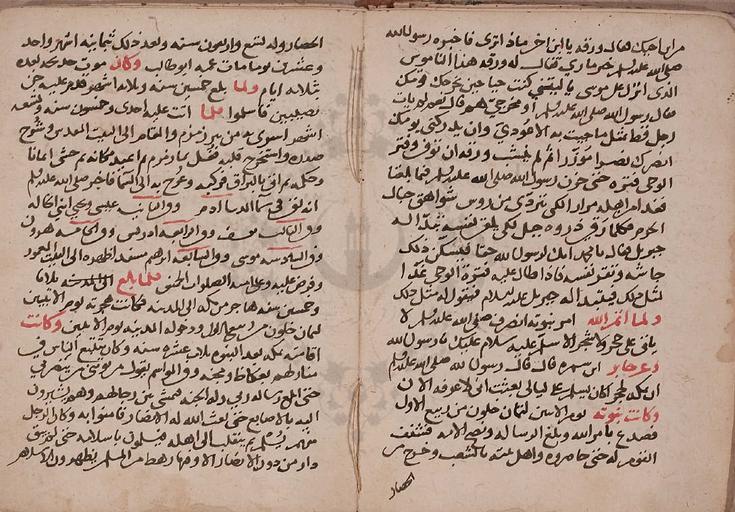 من ابن اخيك فقال ورقة يا ابن اخي ماذا ترى فاخبره رسول الله
صلى الله عليه وسلم خبر ما رأى فقال له ورقة هذا الناموس
الذى انزل على موسى يا ليتنى كنت حيا حين يخرجك قومك
قال رسول الله صلى الله عليه وسلم او مخرجي هم قال نعم لم يات
رجل قط بمثل ما جيت به الا عودي وان يدركني يومك
انصرك نصرا موزرا ثم لم ينشب ورقة ان توفى وفتر
الوحي فترة حتى حزن رسول الله صلى الله عليه وسلم فيما بلغنا
غدا منه مرارا لكي يتردى من رءوس شواهق جبال
الحرم فكلما رقى ذروة جبل لكي يلقى نفسه تبدا له
جبريل فقال يا محمد انك لرسول الله حقا فيسكن ذلك
جاشه وتقر نفسه فاذا طال عليه فترة الوحي غدا
لمثل ذلك فيتبدا له جبريل عليه السلام فيقول له مثل ذلك
ولما اتم الله امر نبوته انصرف صلى الله عليه وسلم لا
ياتى على حجر ولا شجر الا سلم عليه سلام عليك يا رسول الله
وعن جابر ابن سمره قال قال رسول الله صلى الله عليه وسلم
ان بمكة لحجرا كان يسلم على ليالي بعثت اني لاعرفه الان
وكانت نبوته يوم الاثنين لثمان خلون من ربيع الاول
فصدع بامر الله وبلغ الرسالة ونصح الامة
القوم له حتى حاصروه واهل بيته بالشعب وخرج من
الحصار وله تسع واربعون سنة وبعد ذلك ثمانية اشهر واحد
وعشرين يوما مات عمه ابو طالب وكان موت خديجة بعده
بثلاثة ايام ولما بلغ خمسين سنة وثلاثة اشهر قدم عليه جن
نصيبين فاسلموا فلما اتت عليه احدى وخمسون سنة وتسعة
اشهر اسري به من بين زمزم والمقام الى البيت المقدس وشرح
صدره واستخرج قلبه فغسل بماء زمزم ثم اعيد مكانه ثم حشى ايمانا
وحكمة ثم اتى بالبراق فركبه وعرج به الى السما فاخبر صلى الله عليه وسلم
انه لقى في سما الدنيا ادم وفي الثانية عيسى ويحيى ابنى الخالة
وفي الثالثة يوسف وفي الرابعة ادريس وفي الخامسة هرون
وفي السادسة موسى وفي السابعة ابرهيم مسندا ظهره الى البيت المعمور
وفرض عليه وعلى امته الصلوات الخمس فلما بلغ ثلاثا
وخمسين سنة هاجر من مكة الى المدينة فكانت هجرته يوم الاثنين
لثمان خلون من ربيع الاول ودخوله المدينة يوم الاثنين وكانت
اقامته بمكة بعد النبوة ثلاث عشرة سنة وكان يتتبع الناس في
منازلهم بعكاظ ومجنة وفي المواسم يقول من يووينى من ينصرني
حتى ابلغ رسالة ربي وله الجنة فيمشي بين رحالهم وهم يشيرون
اليه بالاصابع حتى بعث الله له الانصار فامنوا به وكان الرجل
منهم يسلم ثم ينقلب الى اهله فيسلمون باسلامه حتى لم يبق
دار من دور الانصار الا وفيها رهط من المسلمين يظهرون الاسلام